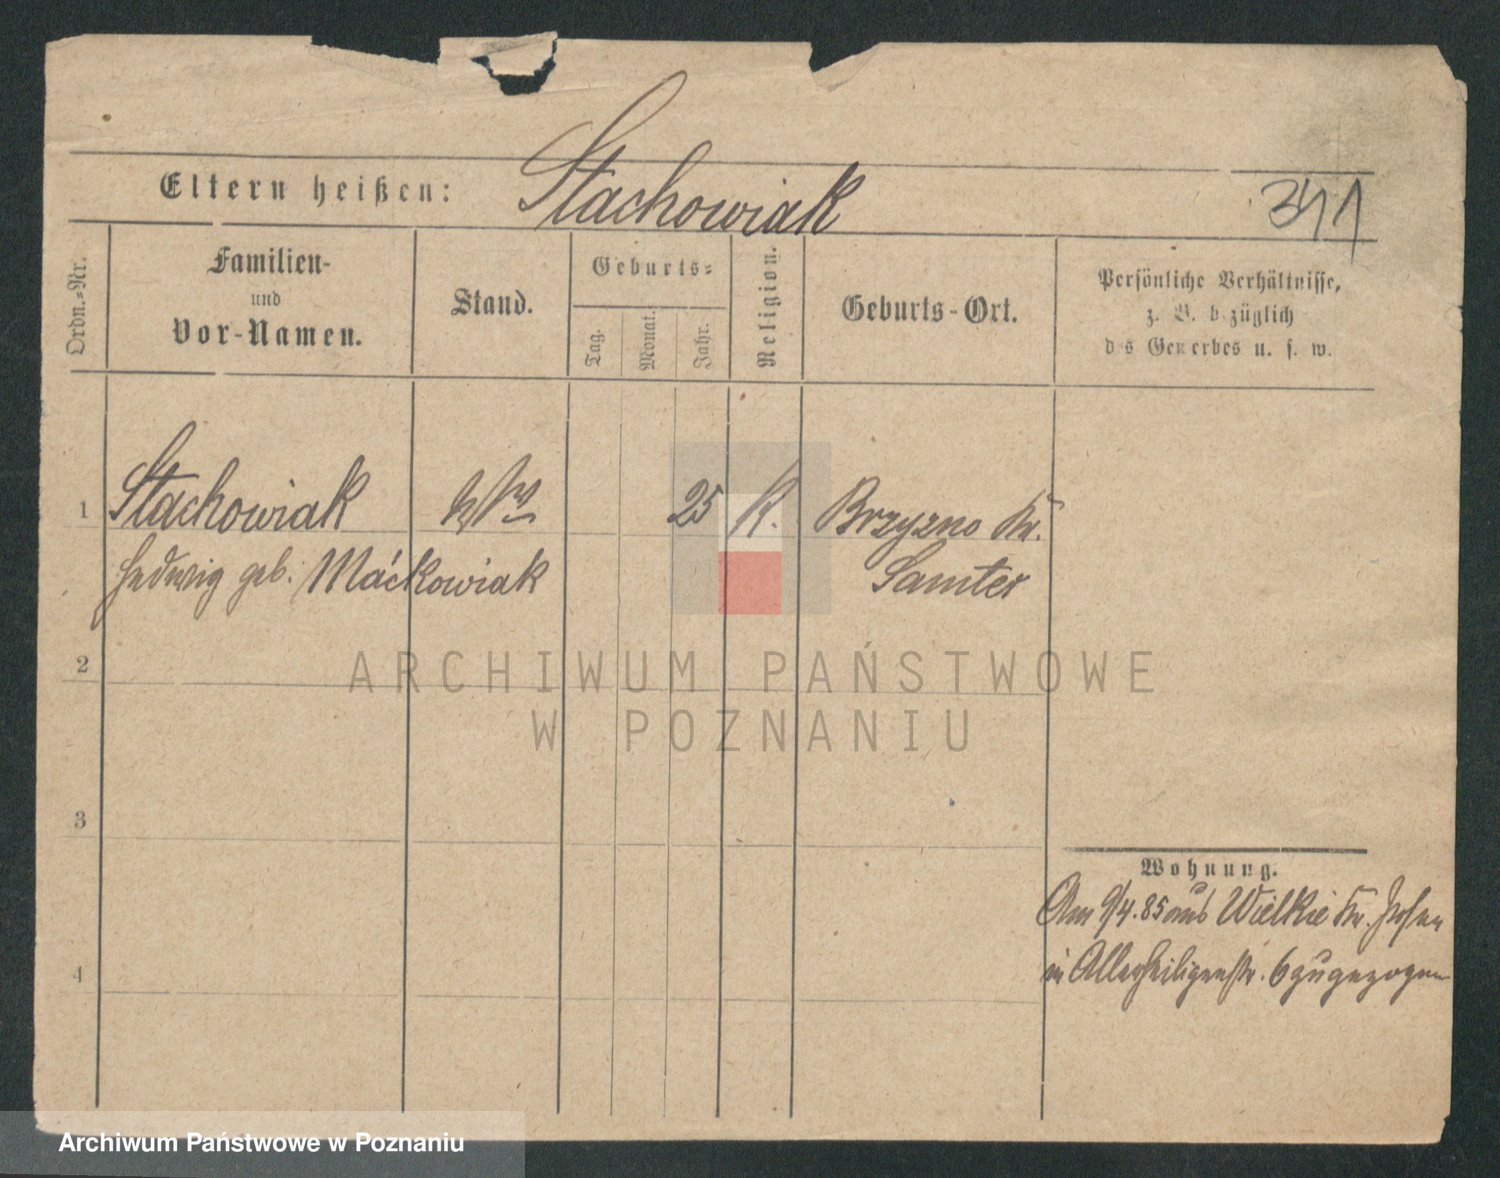 Eltern heißen: Stachowiak
341
Ordn.=Nr.
Familien-
und
Vor-Namen.
Stand.
Geburts=
Tag.
Monat.
Jahr.
Religion.
Geburts-Ort.
Persönliche Verhältnisse,
z. B. bezüglich
des Gewerbes u. s. w.
1 Stachowiak Wwe 25 K. Brzyzno Kr.
Hedwig geb. Maćkowiak Samter
2
3
4
Wohnung.
Am 9/4.85 aus Wielkie Kr. Posen
in Allerheiligenstr. 6 zugezogen
ARCHIWUM PAŃSTWOWE
W POZNANIU
Archiwum Państwowe w Poznaniu